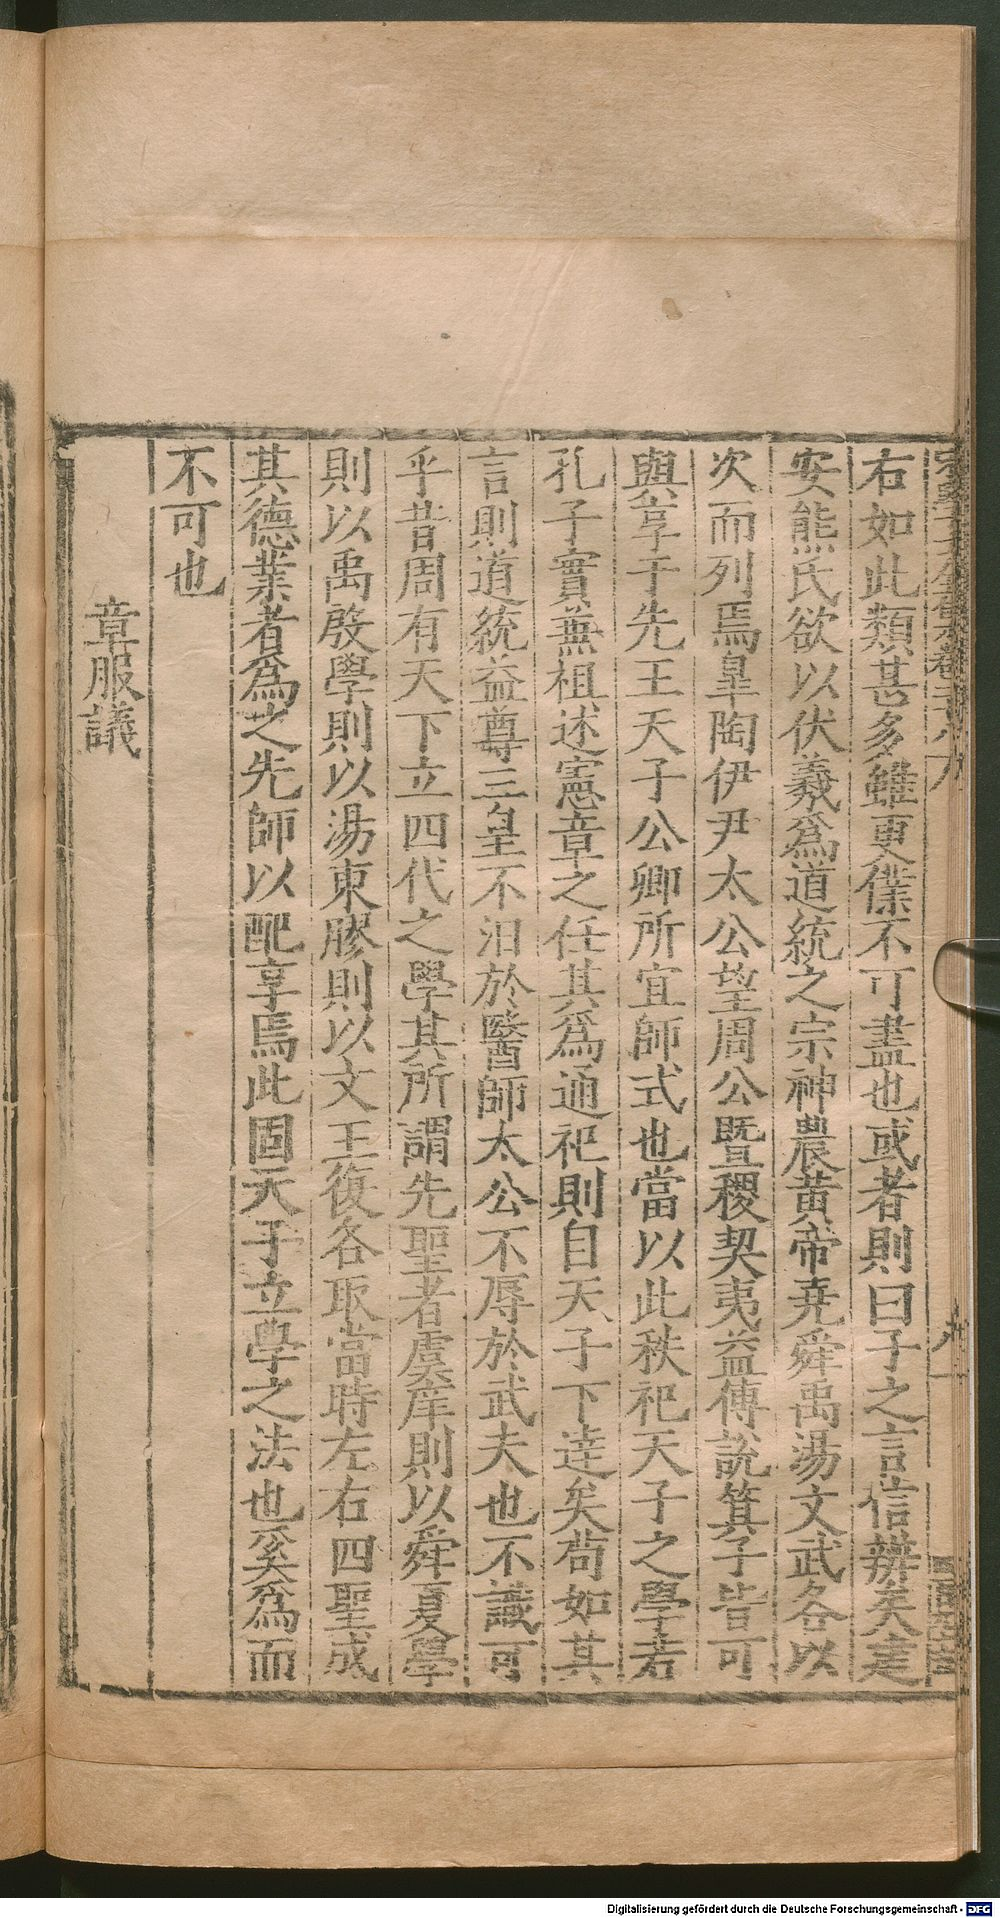 右如此類甚多雖更僕不可盡也或者則曰子之言信辨矣建
安熊氏欲以伏羲爲道統之宗神農黃帝堯舜禹湯文武各以
次而列焉皐陶伊尹太公望周公曁稷契夷益傅說箕子皆可
與享于先王天子公卿所宜師式也當以此秩祀天子之學若
孔子實兼祖述憲章之任其爲通祀則自天子下達矣茍如其
言則道統益尊三皇不汨於醫師太公不辱於武夫也不識可
乎昔周有天下立四代之學其所謂先聖者虞庠則以舜夏學
則以禹殷學則以湯東膠則以文王復各取當時左右四聖成
其德業者爲之先師以配享焉此固天子立學之法也奚爲而
不可也
章服議
Digitalisierung gefördert durch die Deutsche Forschungsgemeinschaft - DFG